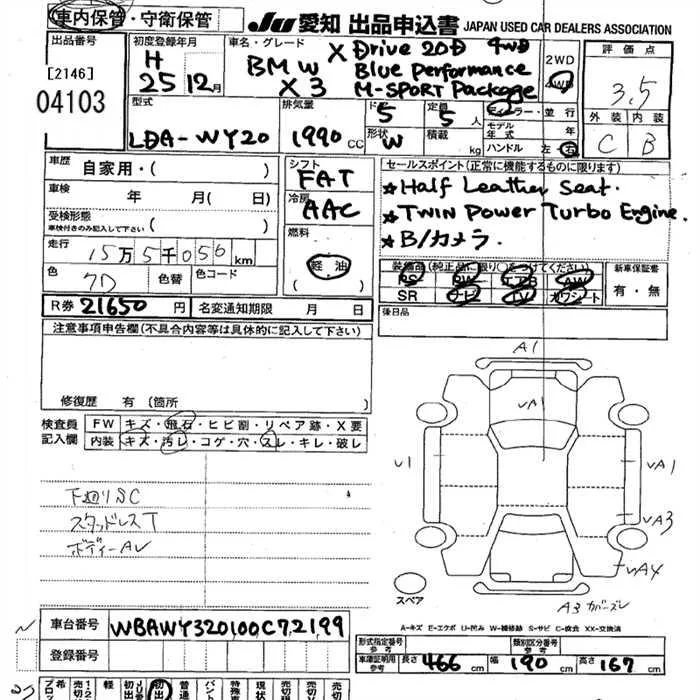 車内保管・守衛保管
JU 愛知 出品申込書 JAPAN USED CAR DEALERS ASSOCIATION
出品番号
[2146]
04103
初度登録年月
H
25 12月
車名・グレード
BMW X3
X Drive 20D 4WD
Blue Performance
M-SPORT Package
2WD
4WD
評価点
3.5
外装 内装
C B
型式
LDA-WY20
排気量
1990 CC
ドア
5
形状
W
定員
5 人
積載
kg
ディーラー・並行
モデル年式 年
ハンドル 左・右
車歴
自家用・( )
車検
年 月( 日)
受検形態
車検付きのみ記入して下さい
( )
走行
15万5千056 km
色
クロ
色替
色コード
R券 21650 円
名変通知期限 月 日
シフト
FAT
冷房
AAC
燃料
軽油
( )
セールスポイント(正常に機能するものに限ります)
★Half Leather Seat.
★TWIN Power Turbo Engine.
★B/カメラ.
装備品(純正品に限り○をつけてください)
PS PW エアB AW
SR ナビ TV カワシート
新車保証書
有・無
後日品
注意事項申告欄(不具合内容等は具体的に記入して下さい)
修復歴 有(箇所 )
検査員記入欄
FW キズ・飛石・ヒビ割・リペア跡・X要
内装 キズ・汚レ・コゲ・穴・スレ・キレ・破レ
下廻りSC
スタッドレスT
ボディーAU
A1
VA1
U1
VA1
VA3
VA4
A3 カバーズレ
スペア
A-キズ E-エクボ U-凹み W-補修跡 S-サビ C-腐食 XX-交換済
車台番号 WBAWY320100C72199
登録番号
形式指定番号
類別区分番号
車庫証明用参考
長さ 466 cm 幅 190 cm 高さ 167 cm